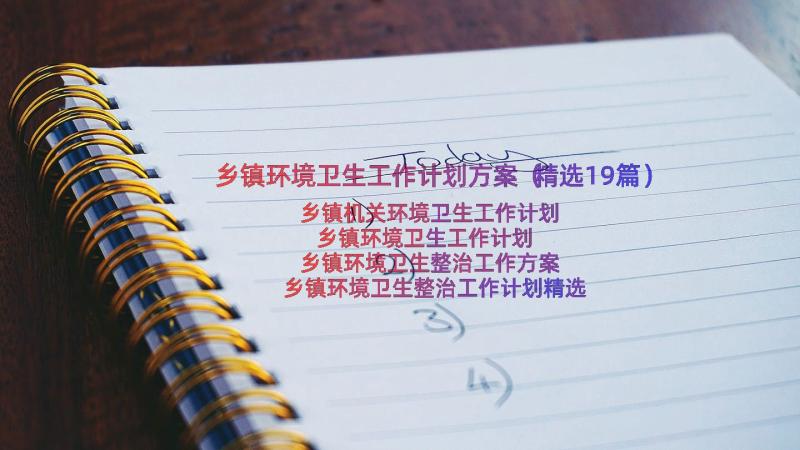 Today
乡镇环境卫生工作计划方案（精选19篇）
1)
乡镇机关环境卫生工作计划
乡镇环境卫生工作计划
2)
乡镇环境卫生整治工作方案
乡镇环境卫生整治工作计划精选
3)
4)